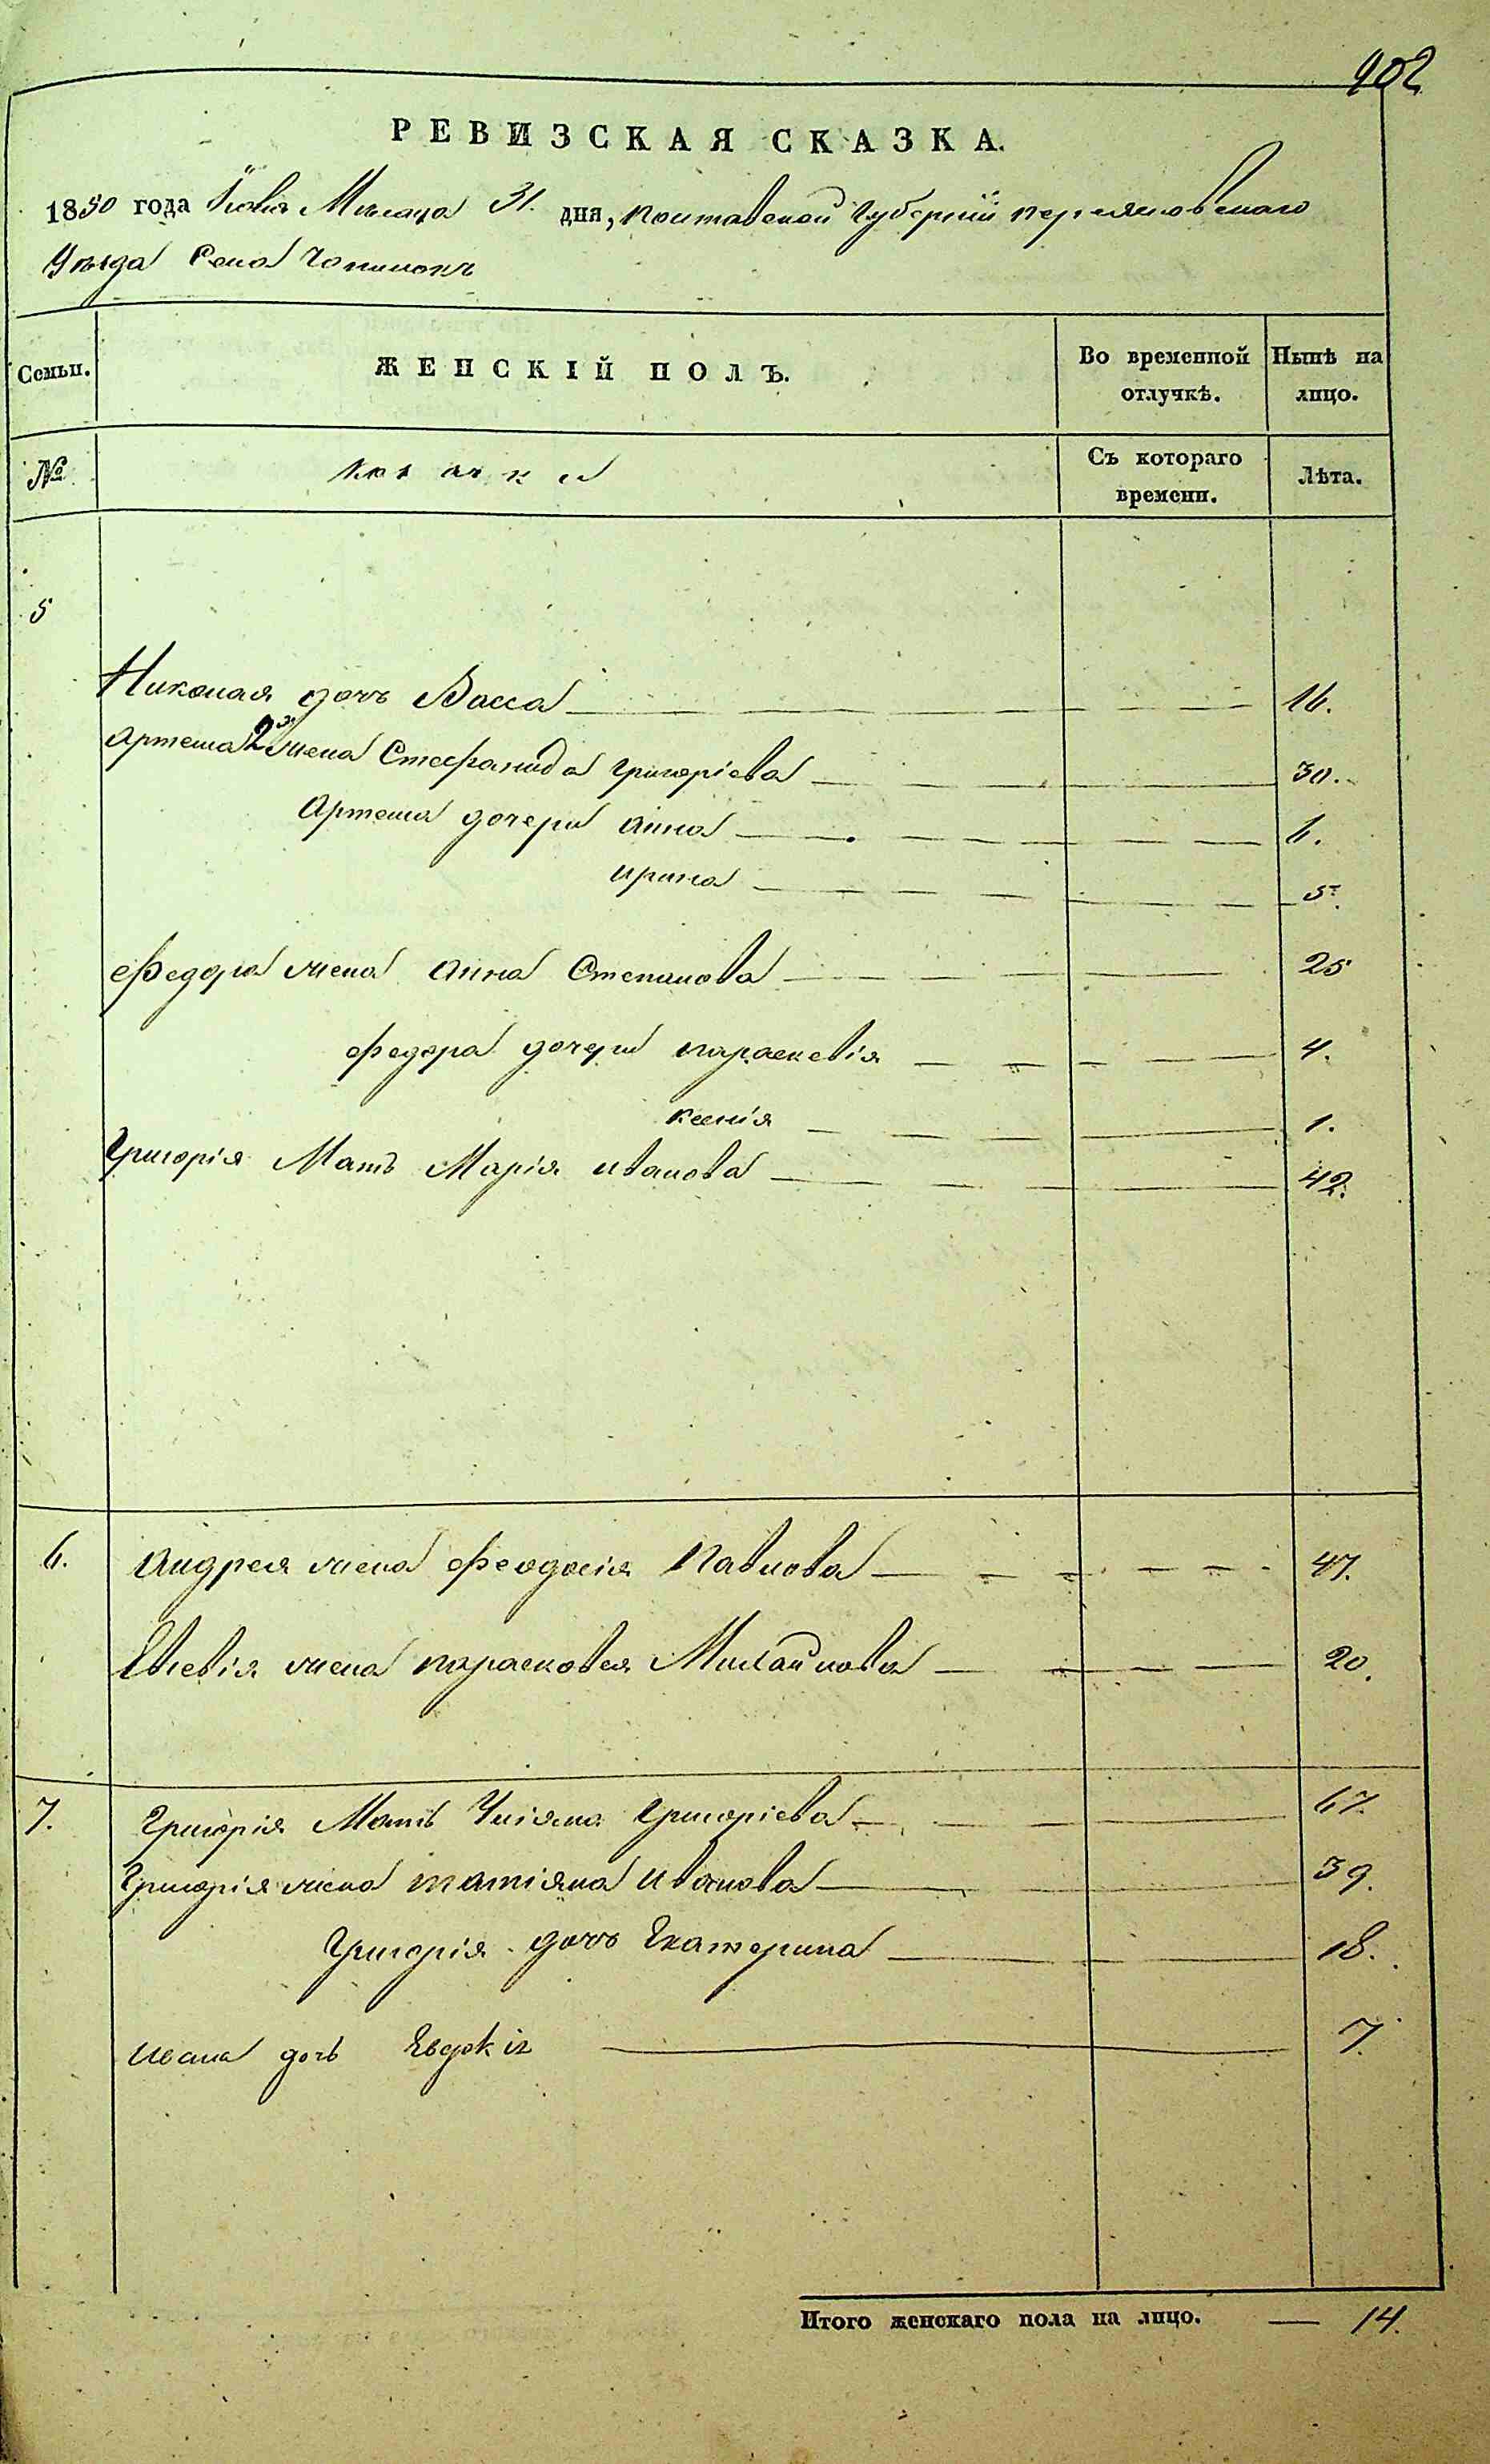 402
РЕВИЗСКАЯ СКАЗКА.
1850 года Іюля Мѣсяца 31. дня, Полтавской Губерніи переяславского
Уѣзда Села
Семьи. ЖЕНСКІЙ ПОЛЪ. Во временной отлучкѣ. Нынѣ на лицо.
№ Козачки Съ котораго времени. Лѣта.
5
Николая дочь Васса 16.
Артема 2я жена Стефанида Григоріева 30.
Артема дочери Анна 6.
ирина 5.
Федора жена Анна Степанова 25
Федора дочери параскевія 4.
ксенія 1.
Григорія Мать Марія иванова 42.
6. Андрея жена Феодосія Павлова 47.
Евсевія жена парасковея Михайлова 20.
7. Григорія Мать Уліяна Григоріева 67.
Григорія жена татіяна иванова 39.
Григорія дочь Екатерина 18.
ивана дочь Евдокія 7.
Итого женскаго пола на лицо. — 14.